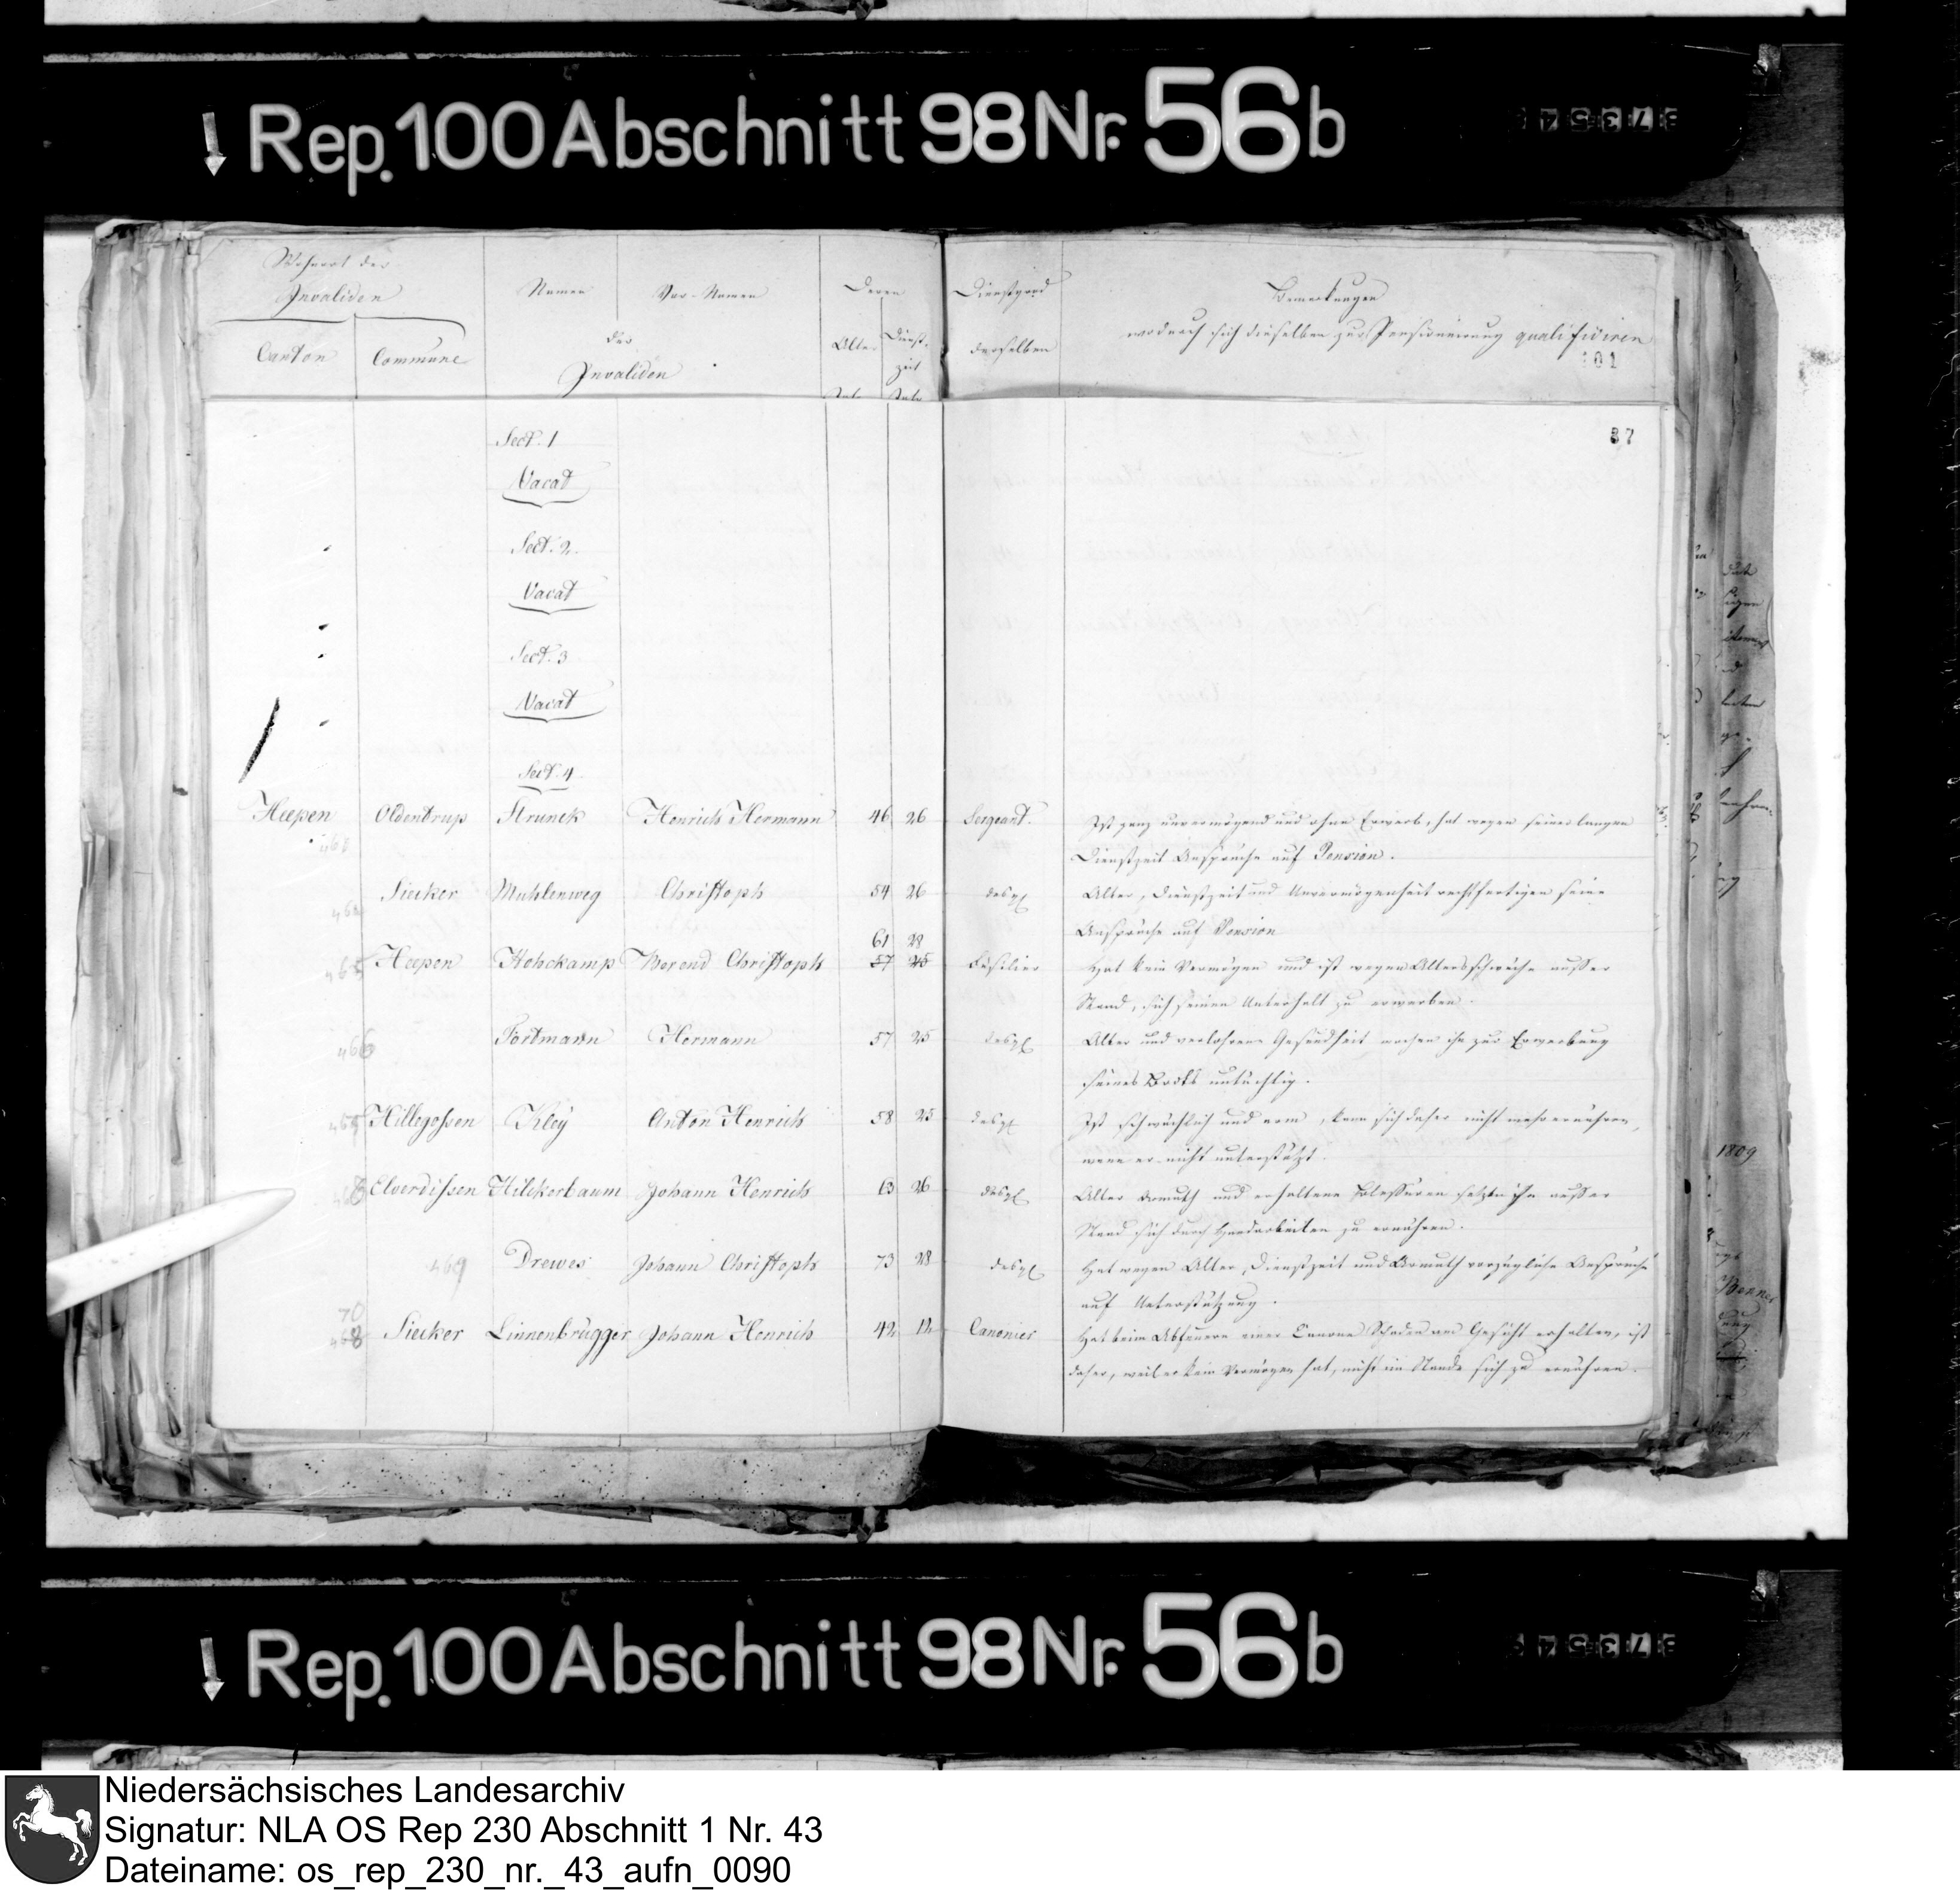 ↓ Rep. 100 Abschnitt 98 Nr. 56 b
Wohnort der
Invaliden
Canton Commune
Namen Vor-Namen
der
Invaliden
Deren
Alter Dienst-
zeit
Dienstgrad
derselben
Bemerkungen
wodurch sich dieselben zur Pensionirung qualificiren
101
87
Sect. 1
Vacat
Sect. 2.
Vacat
Sect. 3
Vacat
Sect. 4
Heepen Oldentrup Strunck Henrich Hermann 46 26 Sergeant. Ist ganz unvermögend und ohne Erwerb, hat wegen seiner langen
Dienstzeit Ansprüche auf Pension.
Siecker Muhlenweg Christoph 54 26 desgl. Alter, Dienstzeit und Unvermögenheit rechtfertigen seine
Ansprüche auf Pension
61 28
Heepen Hohckamp Berend Christoph 57 25 Füsilier Hat kein Vermögen und ist wegen Altersschwäche ausser
Stand, sich seinen Unterhalt zu erwerben.
Fortmann Hermann 57 25 desgl. Alter und verlohrene Gesundheit machen ihn zur Erwerbung
seines Brodts untüchtig.
Hillegossen Kley Anton Henrich 58 25 desgl. Ist schwächlich und arm, kann sich daher nicht mehr ernähren,
wenn er nicht unterstützt.
Elverdissen Hilckerbaum Johann Henrich 63 26 desgl. Alter Armuth und erhaltene Blessuren setzen ihn ausser
Stand sich durch Handarbeiten zu ernähren.
469 Drewes Johann Christoph 73 28 desgl. Hat wegen Alter, Dienstzeit und Armuth vorzügliche Ansprüche
auf Unterstützung.
70
468 Siecker Linnenbrügger Johann Henrich 42 12 Canonier Hat beim Abfeuern einer Canone Schaden am Gesicht erhalten, ist
daher, weil er kein Vermögen hat, nicht im Stande sich zu ernähren.
1809
↓ Rep. 100 Abschnitt 98 Nr. 56 b
Niedersächsisches Landesarchiv
Signatur: NLA OS Rep 230 Abschnitt 1 Nr. 43
Dateiname: os_rep_230_nr._43_aufn_0090